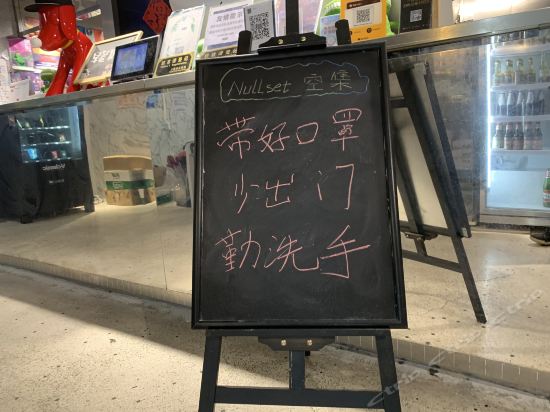 Nullset 空集
带好口罩
少出门
勤洗手